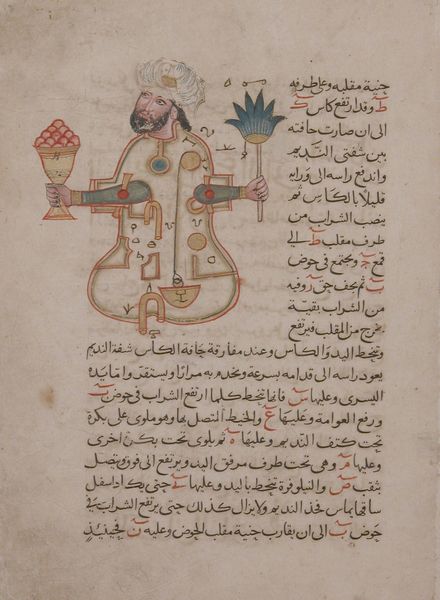 جنبة مقلبه وعلى طرفه
ط وقد ارتفع كاس ك
الى ان صارت حافته
بين شفتى النديم
واندفع راسه الى ورايه
قليلا بالكاس ثم
ينصب الشراب من
طرف مقلب ط الى
قمع ج ويجتمع فى حوض
ب ثم يخف حتى وفيه
من الشراب بقية
يخرج من المقلب فيرتفع
وتنحط اليد والكاس وعند مفارقة حافة الكاس شفة النديم
يعود راسه الى قدامه بسرعة ويخدم به مرارا ويستقر واما يده
اليسرى وعليها س فانها تنحط كلما ارتفع الشراب فى حوض ب
ورفع العوامة وعليها ع والخيط المتصل بها وهو ملوى على بكرة
تحت كتف النديم وعليها ه ثم يلوى تحت بكرة اخرى
وعليها م وهى تحت طرف مرفق اليد ويرتفع الى فوق ويتصل
بثقب ص والنيلوفرة تنحط باليد وعليها حتى يكاد اسفل
ساقها يماس فخذ النديم ولا يزال كذلك حتى يرتفع الشراب فى
حوض ب الى ان يقارب جنبة مقلب الحوض وعليه ن فحينيذ